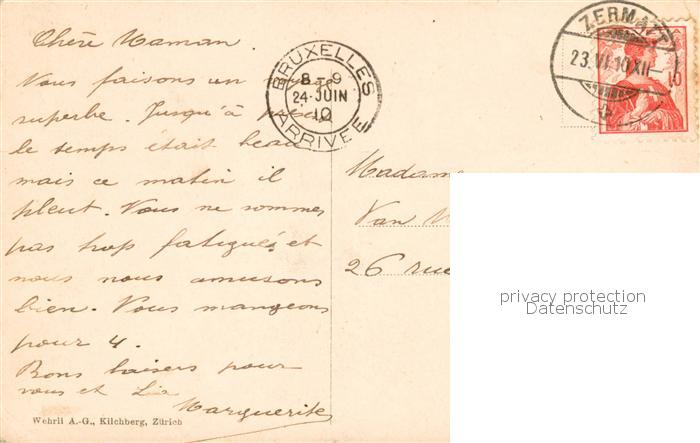 Chère Maman.
Nous faisons un
superbe. Jusqu'à
le temps était beau
mais ce matin il
pleut. Nous ne sommes
pas trop fatigués et
nous nous amusons
bien. Nous mangeons
pour 4.
Bons baisers pour
vous et
Marguerite
Wehrli A.-G., Kilchberg, Zürich
BRUXELLES
8-9
24-JUIN
10
ARRIVEE
ZERMATT
23.VI.10.XII-
10
Madame
Van
26 rue
privacy protection
Datenschutz